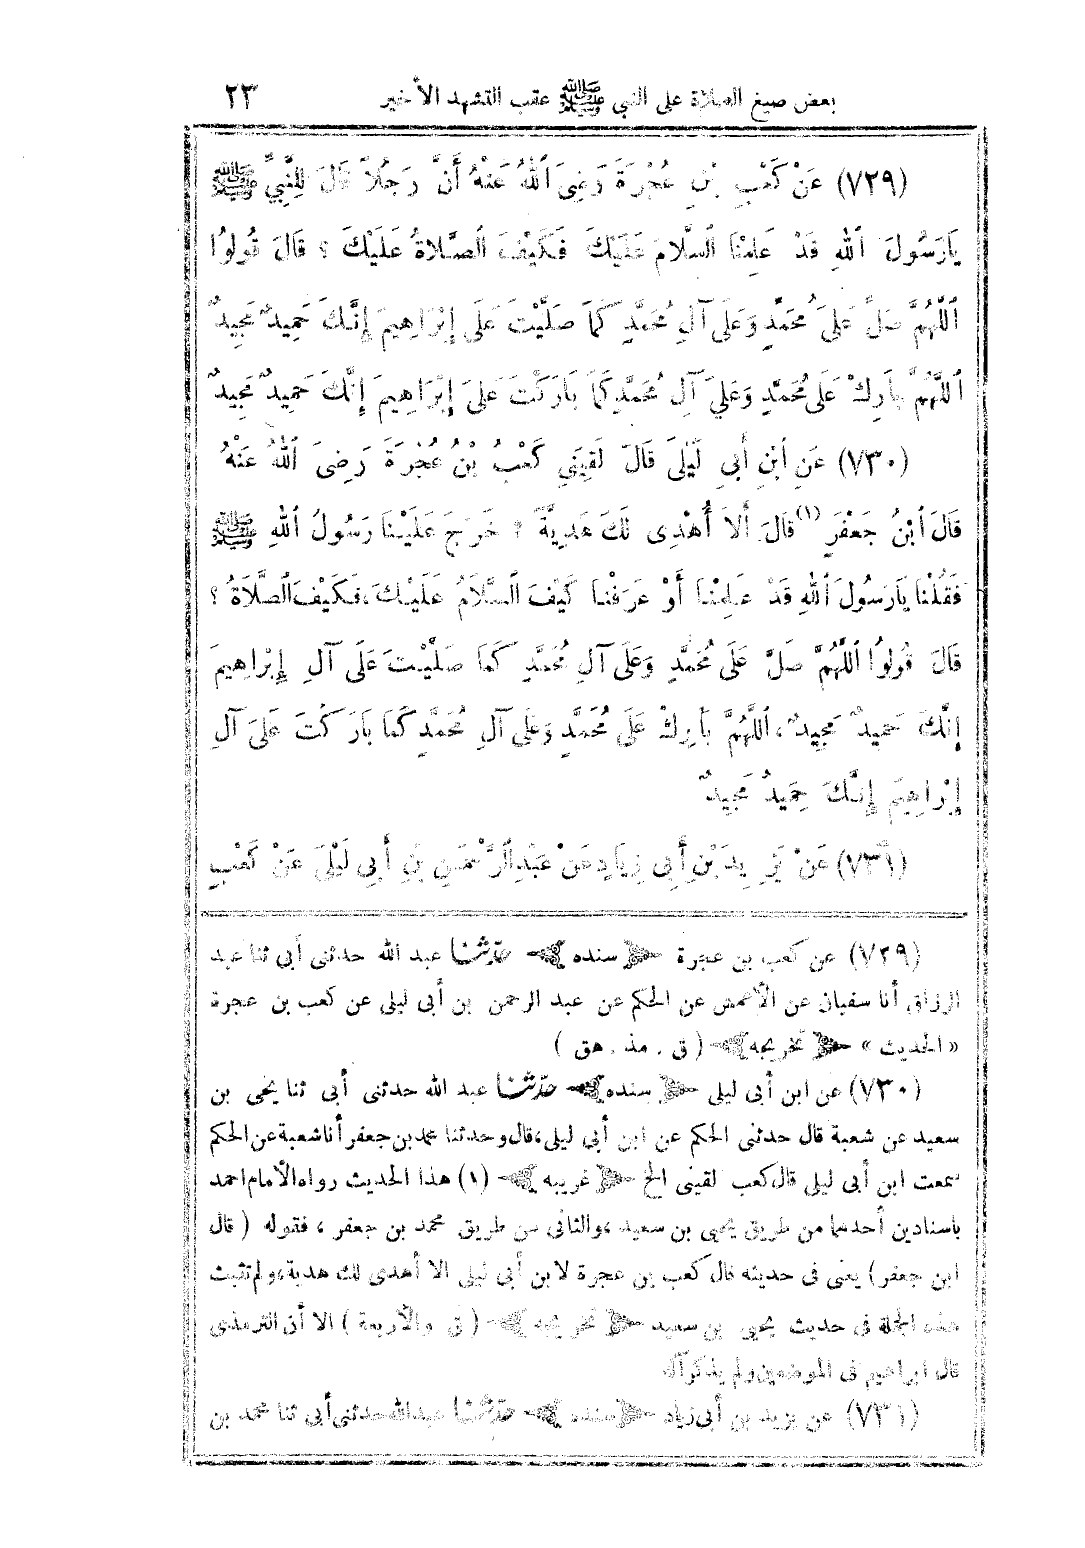 بعض صيغ الصلاة على النبي ﷺ عقب التشهد الأخير ٢٣
(٧٢٩) عَنْ كَعْبِ بْنِ عُجْرَةَ رَضِىَ ٱللهُ عَنْهُ أَنَّ رَجُلاً قَالَ لِلنَّبِيِّ ﷺ
يَارَسُولَ ٱللهِ قَدْ عَلِمْنَا ٱلسَّلاَمَ عَلَيْكَ فَكَيْفَ ٱلصَّلاَةُ عَلَيْكَ ؟ قَالَ قُولُوا
ٱللَّهُمَّ صَلِّ عَلَىَ مُحَمَّدٍ وَعَلَى آلِ مُحَمَّدٍ كَمَا صَلَّيْتَ عَلَى إِبْرَاهِيمَ إِنَّكَ حَمِيدٌ مَجِيدٌ
ٱللَّهُمَّ بَارِكْ عَلَى مُحَمَّدٍ وَعَلَىَ آلِ مُحَمَّدٍ كَمَا بَارَكْتَ عَلَىَ إِبْرَاهِيمَ إِنَّكَ حَمِيدٌ مَجِيدٌ
(٧٣٠) عَنِ ٱبْنِ أَبِي لَيْلَىَ قَالَ لَقِيَنِي كَعْبُ بْنُ عُجْرَةَ رَضِىَ ٱللهُ عَنْهُ
قَالَ ٱبْنُ جَعْفَرٍ (١) قَالَ أَلاَ أُهْدِى لَكَ هَدِيَّةً ؟ خَرَجَ عَلَيْنَا رَسُولُ ٱللهِ ﷺ
فَقُلْنَا يَارَسُولَ ٱللهِ قَدْ عَلِمْنَا أَوْ عَرَفْنَا كَيْفَ ٱلسَّلاَمُ عَلَيْكَ، فَكَيْفَ ٱلصَّلاَةُ ؟
قَالَ قُولُوا ٱللَّهُمَّ صَلِّ عَلَى مُحَمَّدٍ وَعَلَى آلِ مُحَمَّدٍ كَمَا صَلَّيْتَ عَلَى آلِ إِبْرَاهِيمَ
إِنَّكَ حَمِيدٌ مَجِيدٌ، ٱللَّهُمَّ بَارِكْ عَلَى مُحَمَّدٍ وَعَلَى آلِ مُحَمَّدٍ كَمَا بَارَكْتَ عَلَىَ آلِ
إِبْرَاهِيمَ إِنَّكَ حَمِيدٌ مَجِيدٌ
(٧٣١) عَنْ يَزِيدَ بْنِ أَبِي زِيَادٍ عَنْ عَبْدِ ٱلرَّحْمَنِ بْنِ أَبِي لَيْلَىَ عَنْ كَعْبِ
(٧٢٩) عن كعب بن عجرة سنده حدّثنا عبد الله حدثنى أبى ثنا عبد
الرزاق أنا سفيان عن الأعمش عن الحكم عن عبد الرحمن بن أبى ليلى عن كعب بن عجرة
« الحديث » تخريجه ( ق . مذ . هق )
(٧٣٠) عن ابن أبى ليلى سنده حدّثنا عبد الله حدثنى أبى ثنا يحيى بن
سعيد عن شعبة قال حدثنى الحكم عن ابن أبى ليلى، قال وحدثنا محمد بن جعفر أنا شعبة عن الحكم
سمعت ابن أبى ليلى قال كعب لقينى الخ غريبه (١) هذا الحديث رواه الأمام احمد
باسنادين أحدهما من طريق يحيى بن سعيد ، والثانى من طريق محمد بن جعفر ، فقوله ( قال
ابن جعفر ) يعنى فى حديثه قال كعب بن عجرة لابن أبى ليلى الا أهدى لك هدية، ولم تثبت
هذه الجملة فى حديث يحيى بن سعيد تخريجه ( ق والأربعة ) الا أن الترمذى
قال ابراهيم فى الموضعين ولم يذكر آله
(٧٣١) عن يزيد بن أبى زياد سنده حدّثنا عبد الله حدثنى أبى ثنا محمد بن